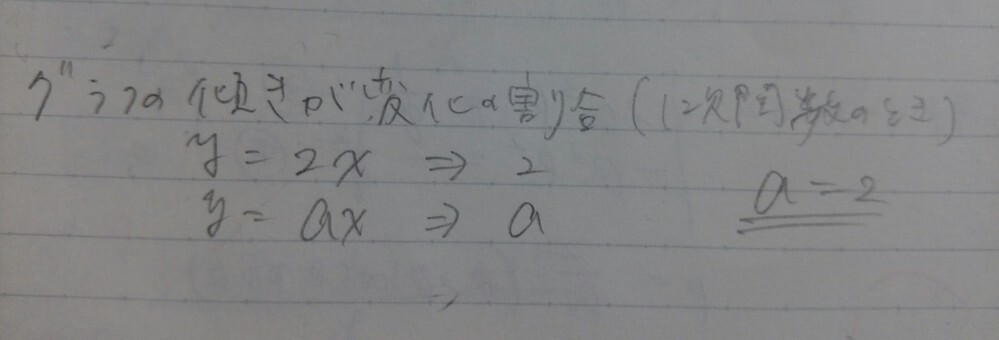 グラフの傾きが変化の割合(1次関数のとき)
y = 2x ⇒ 2
y = ax ⇒ a
a = 2
⇒